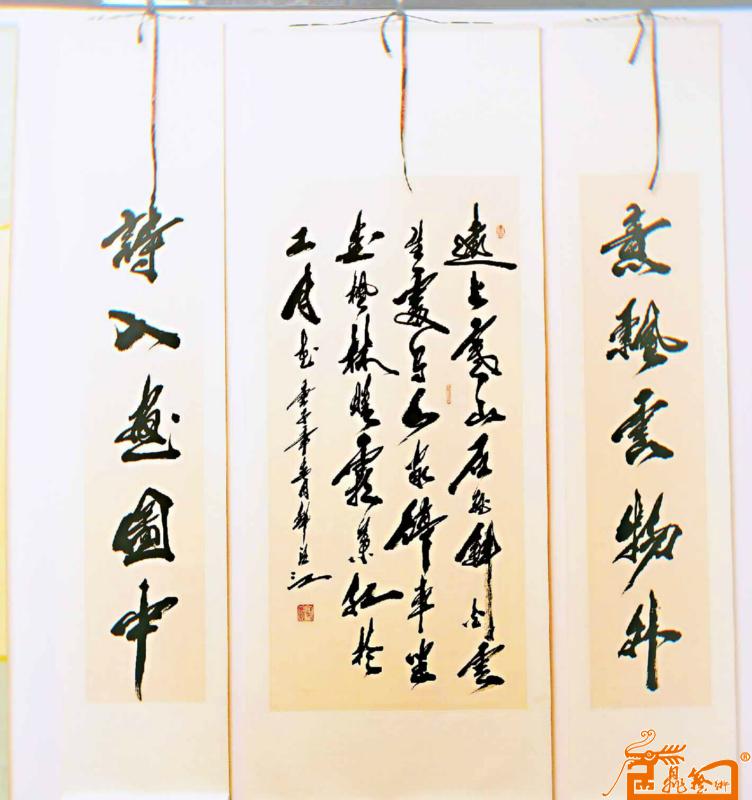 意飄雲物外
遠上寒山石徑斜白雲
生處有人家停車坐
愛楓林晚霜葉紅於
二月花 庚子年
詩入畫圖中